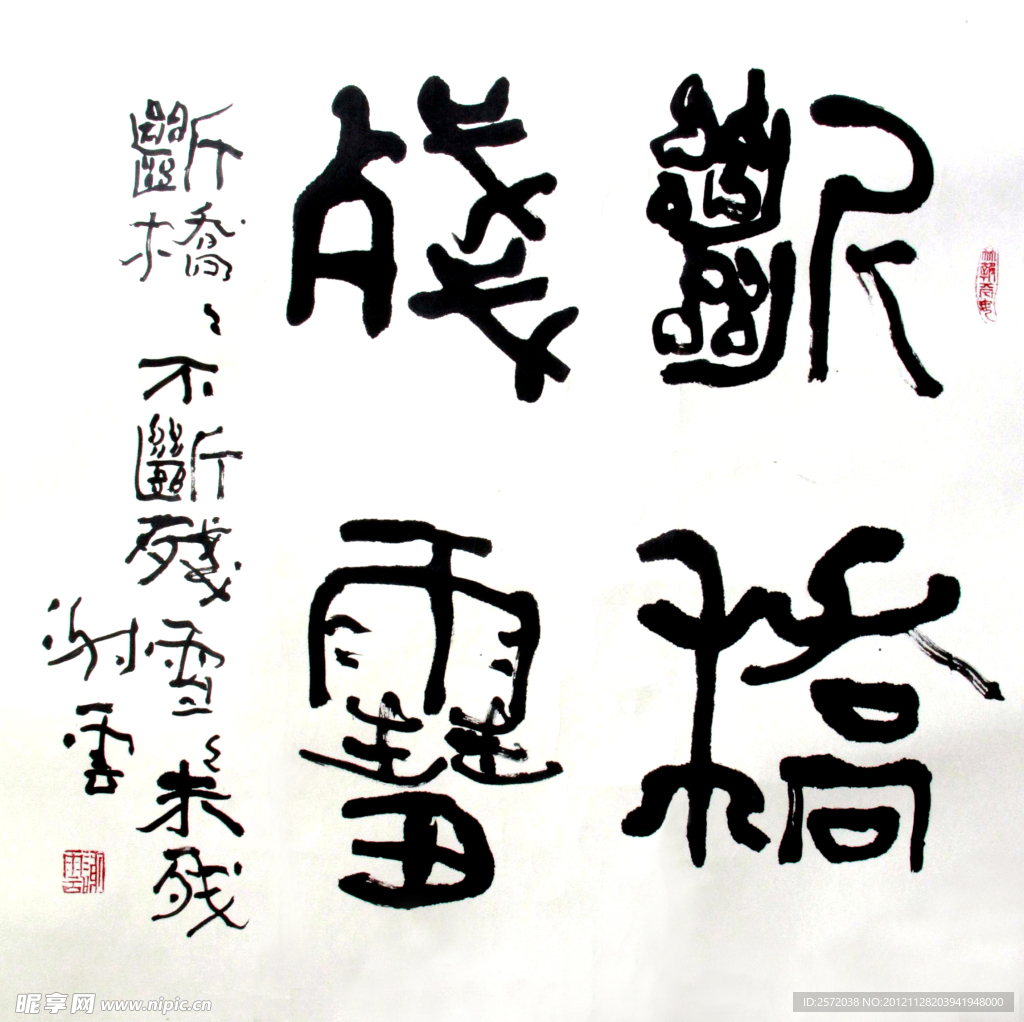 斷橋
殘雪
斷橋〻不斷殘雪〻未殘
謝雲
謝雲
昵享网 www.nipic.cn
ID:2572038 NO:20121128203941948000